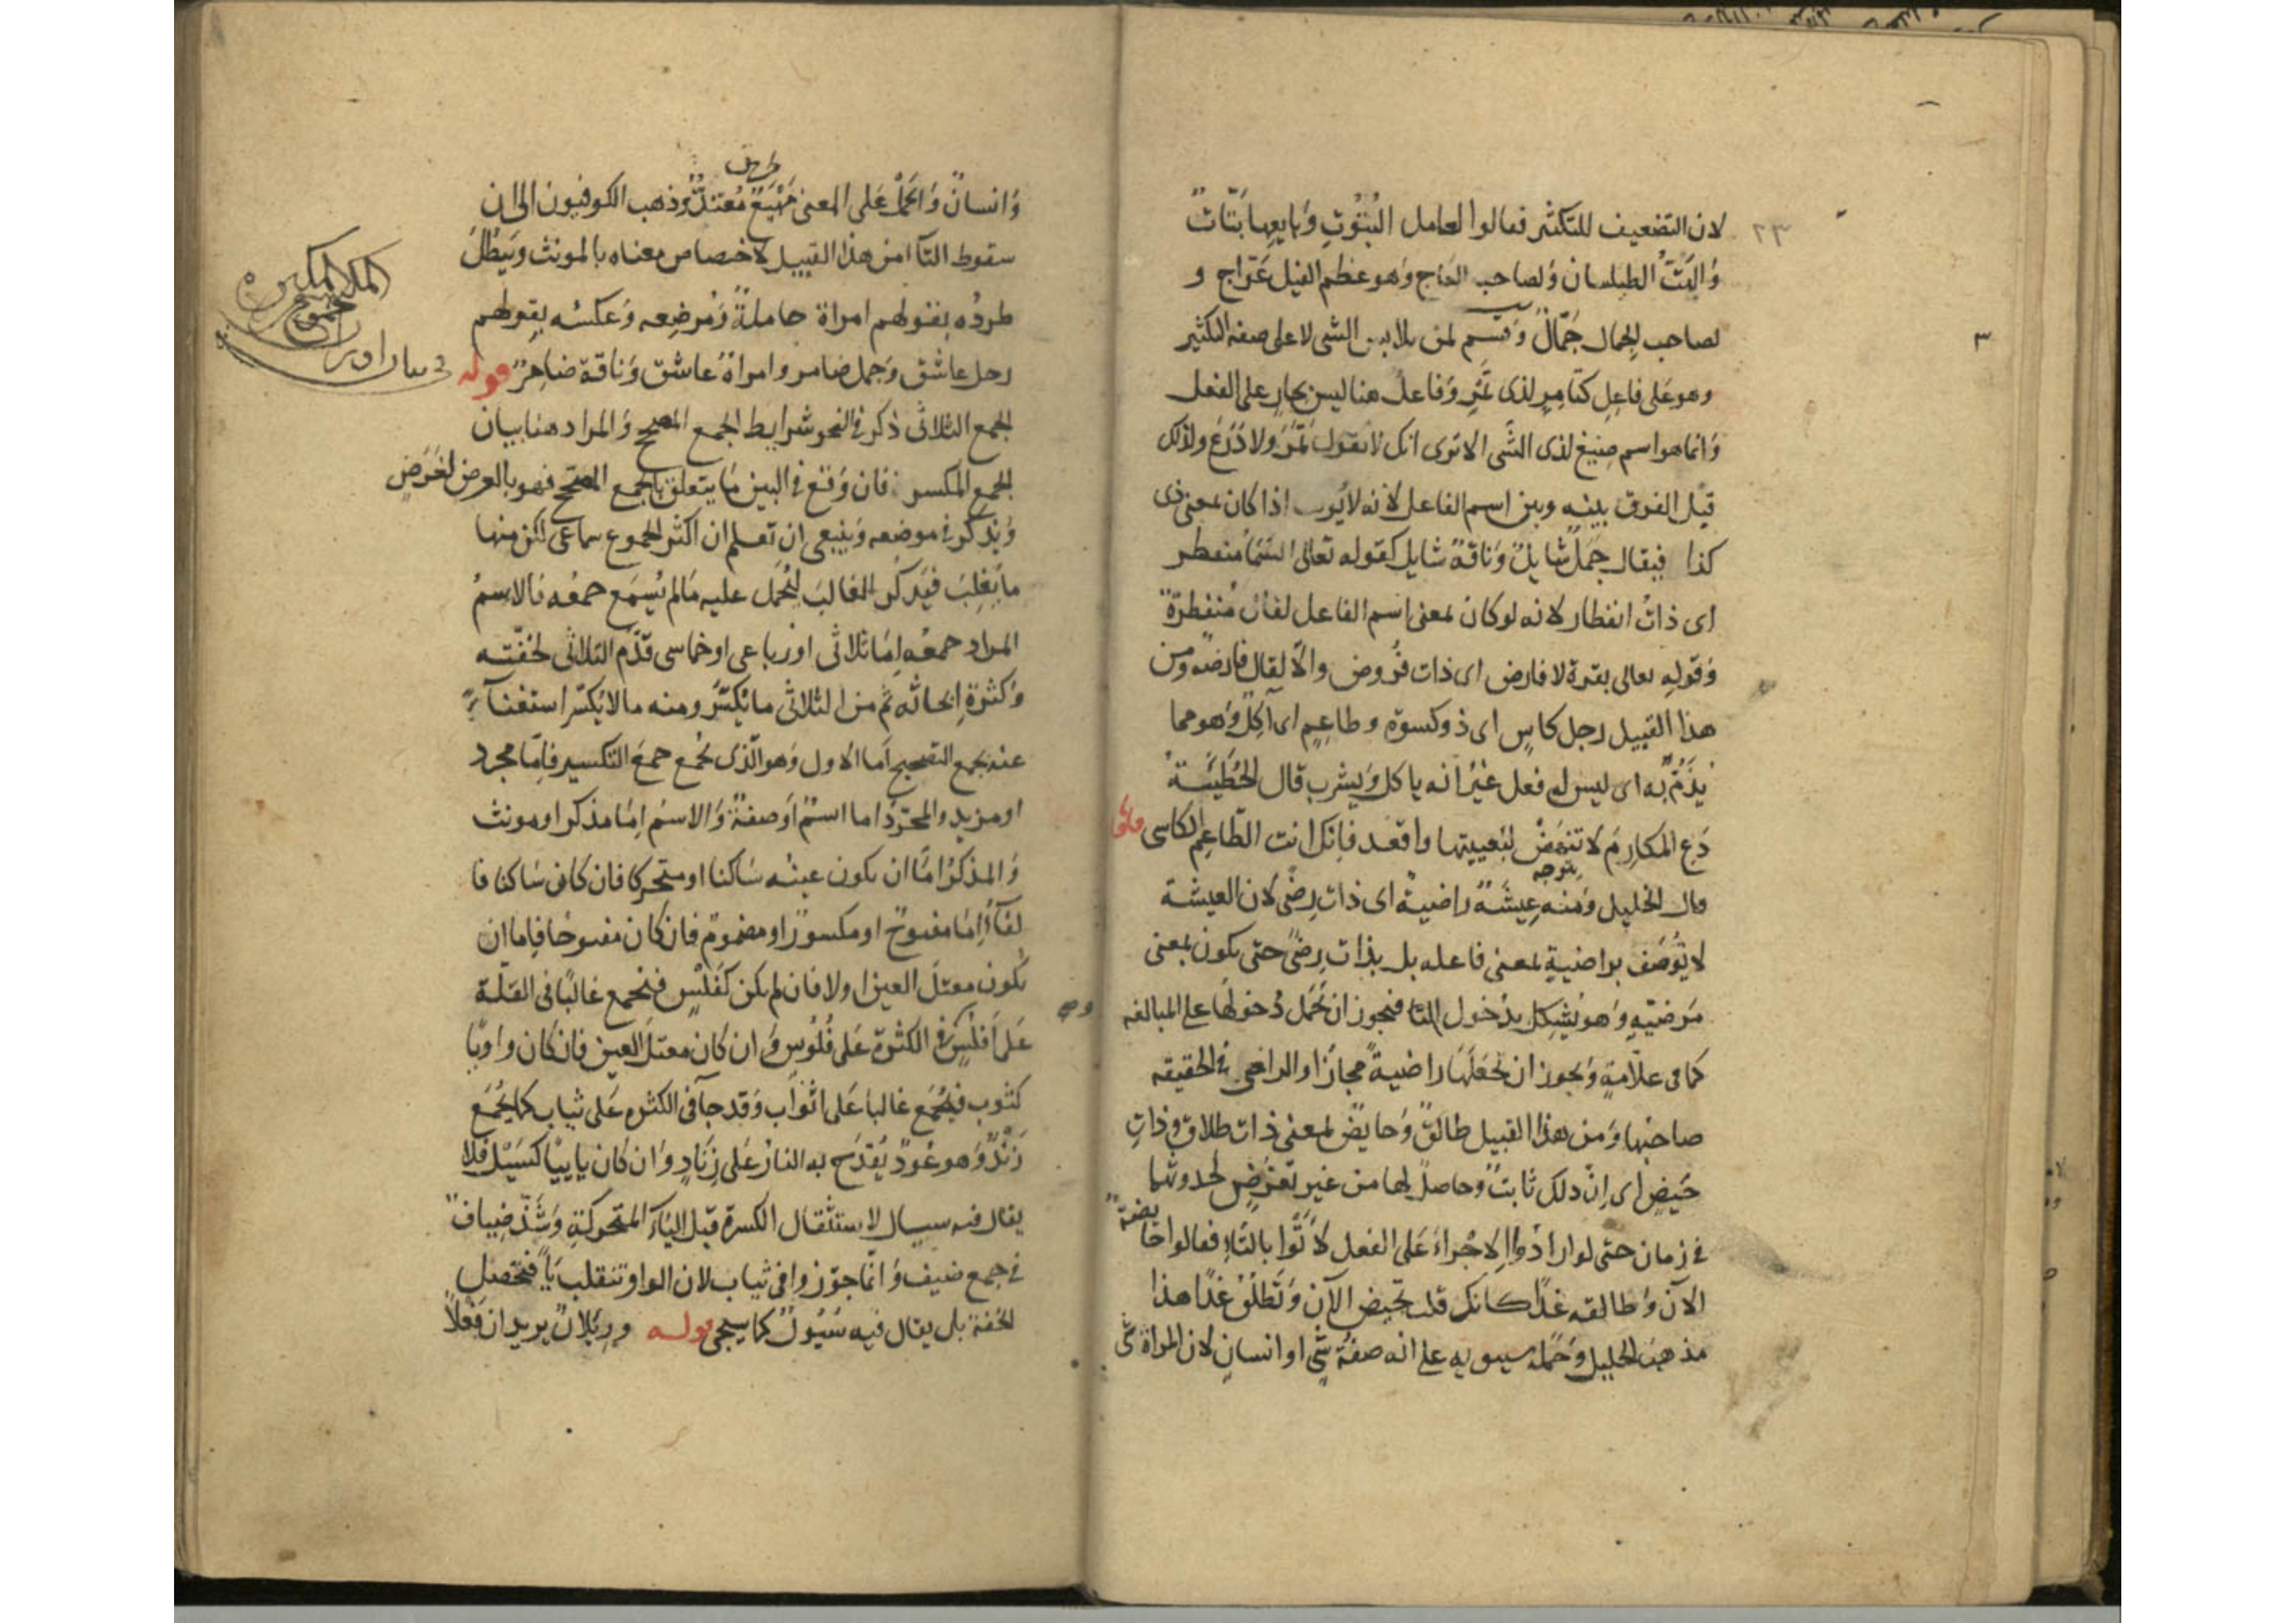 ٢٣
لان التضعيف للتكثير فقالوا لعامل البُتُوتِ وَبايعِها بَتّاتٌ
وَالبَتُّ الطيلسان وَلصاحب العاج وَهو عظم الفيل عَوّاج و
لصاحب الجمال جَمّالٌ وَقسم لمن يلابس الشى لا على صفة التكثير
وهو على فاعِلٍ كتامِرٍ لذى تَمْرٍ وَفاعل هنا ليس بجارٍ على الفعل
وَانما هو اسم صِيغ لذى الشَّى الا ترى انك لا تقول تَمَرَ ولا دَرَعَ ولذلك
قيل الفرق بينه وبين اسم الفاعل لانه لا يؤنث اذا كان بمعنى ذى
كذا فيقال جَمَلٌ شايلٌ وَناقةٌ شايل كقوله تعالى السّمآ منفطر
اى ذاتُ انفطار لانه لو كان بمعنى اسم الفاعل لقال مُنفطرةٌ
وَقولِه تعالى بقرة لا فارض اى ذات فُروض والّا لقال فارضه ومن
هذا القبيل رجل كاسٍ اى ذو كسوة وطاعِمٍ اى آكِلٌ وَهو مما
يُذَمُّ به اى ليس له فعل غيْرُ انه ياكل وَيشرب قال الحُطَيئَة
دَعِ المكارِمَ لا تنهَضْ لبُغيتِها واقعد فانك انت الطّاعِم الكاسى
قال الخليل وَمنه عِيشَةٌ راضيةٌ اى ذات رِضًى لان العيشة
لا تُوصَف براضيةٍ بمعنى فاعله بل بذات رِضًى حتى يكون بمعنى
مَرضيّةٍ وَهو يُشكِل بدُخول التا فيجوز ان تحْمَل دُخولُها على المبالغه
كما فى علّامةٍ وَيجوز ان تجعَلَها راضيةً مجازًا والراضى فى الحقيقه
صاحبُها وَمن هذا القبيل طالقٌ وَحايضٌ بمعنى ذات طلاقٍ وذاتِ
حَيضٍ اى انّ ذلك ثابتٌ وحاصلٌ لها من غير تعرّضٍ لحدوثها
فى زمان حتى لو ارادُوا الاجْراءَ عَلى الفعل لَاتَوا بالتّاء فقالوا حايضةٌ
الآن وَطالقه غدًا كانك قلت تحيض الآن وَتطلُقُ غدًا هذا
مذهبُ الخليل وَحَمله سيبويه على انه صفة شىٍ او انسانٍ لان المراة شى
وَانسانٌ وَالحملُ عَلى المعنى مَهْيَعٌ مُعتدٌّ وَذهب الكوفيون الى ان
طريق
سقوط التآ امن هذا القبيل لاختصاص معناه بالمونث ويَبطُلُ
طردُه بقولهم امراة حاملةٌ وَمُرضِعه وَعكسُه بقولهم
رجل عاشق وَجمل ضامر وامراةٌ عاشق وَناقة ضامِرٌ قوله
الجمع الثلاثى ذكر فى النحو شرايط الجمع المصحح وَالمراد هنا بيان
الجمع المكسر فان وَقع فى البين مَا يتعلق بالجمع المصحح فهو بالعرض لغَرَضٍ
وَيُذكَرُ فى موضعه وَينبغى ان تعلم ان اكثر الجموع سماعى لكن منها
ما يَغلِبُ فيَذكر الغالبَ ليُحْمَلَ عليه مَا لم يُسمَع جمعُه فالاسمُ
المراد جمعُه اِمّا ثلاثى او رباعى او خماسى قدّم الثلاثى لخفّته
وَكثرةِ ابحاثه ثم من الثلاثى ما يُكسَّرُ ومنه ما لا يُكسّر استغنآءً
عنه بجمع التصحيح اَما الاول وَهو الّذى يُجمع جمعَ التكسير فاِمّا مجرد
او مزيد والمجرّدُ اما اسمٌ اَو صفةٌ وَالاسمُ اِمّا مذكر او مونث
وَالمذكرُ امّا ان يكون عينُه سَاكنا او متحركا فان كان سَاكنا فا
لفآءُ اِمّا مفتوحٌ او مكسورٌ او مضمومٌ فان كان مفتوحًا فاِما ان
يكون معتلَّ العين او لا فان لم يكن كفَلْسٍ فيُجمع غالبًا فى القلّة
عَلى اَفلُسٍ وَفى الكثرة عَلى فُلُوسٍ وَان كان معتلَّ العين فان كان واويًّا
كثوب فيُجمَع غالبا عَلى اثوابٍ وَقد جآ فى الكثره عَلى ثياب كما يُجمَع
زَنْدٌ وَهو عُودٌ يُقدَح به النارُ عَلى زِنَادٍ وَان كان يايِيًّا كسَيْل فلا
يقال فيه سيال لاستثقال الكسرة قبل اليآءِ المتحركةِ وَشَذَّ ضِيافٌ
فى جمع ضيف وَانما جوّزوا فى ثياب لان الواو تنقلب يآءً فتحصل
الخفة بل يقال فيه سُيُولٌ كما يجى قوله ورِئلانٌ يريد ان فَعْلًا